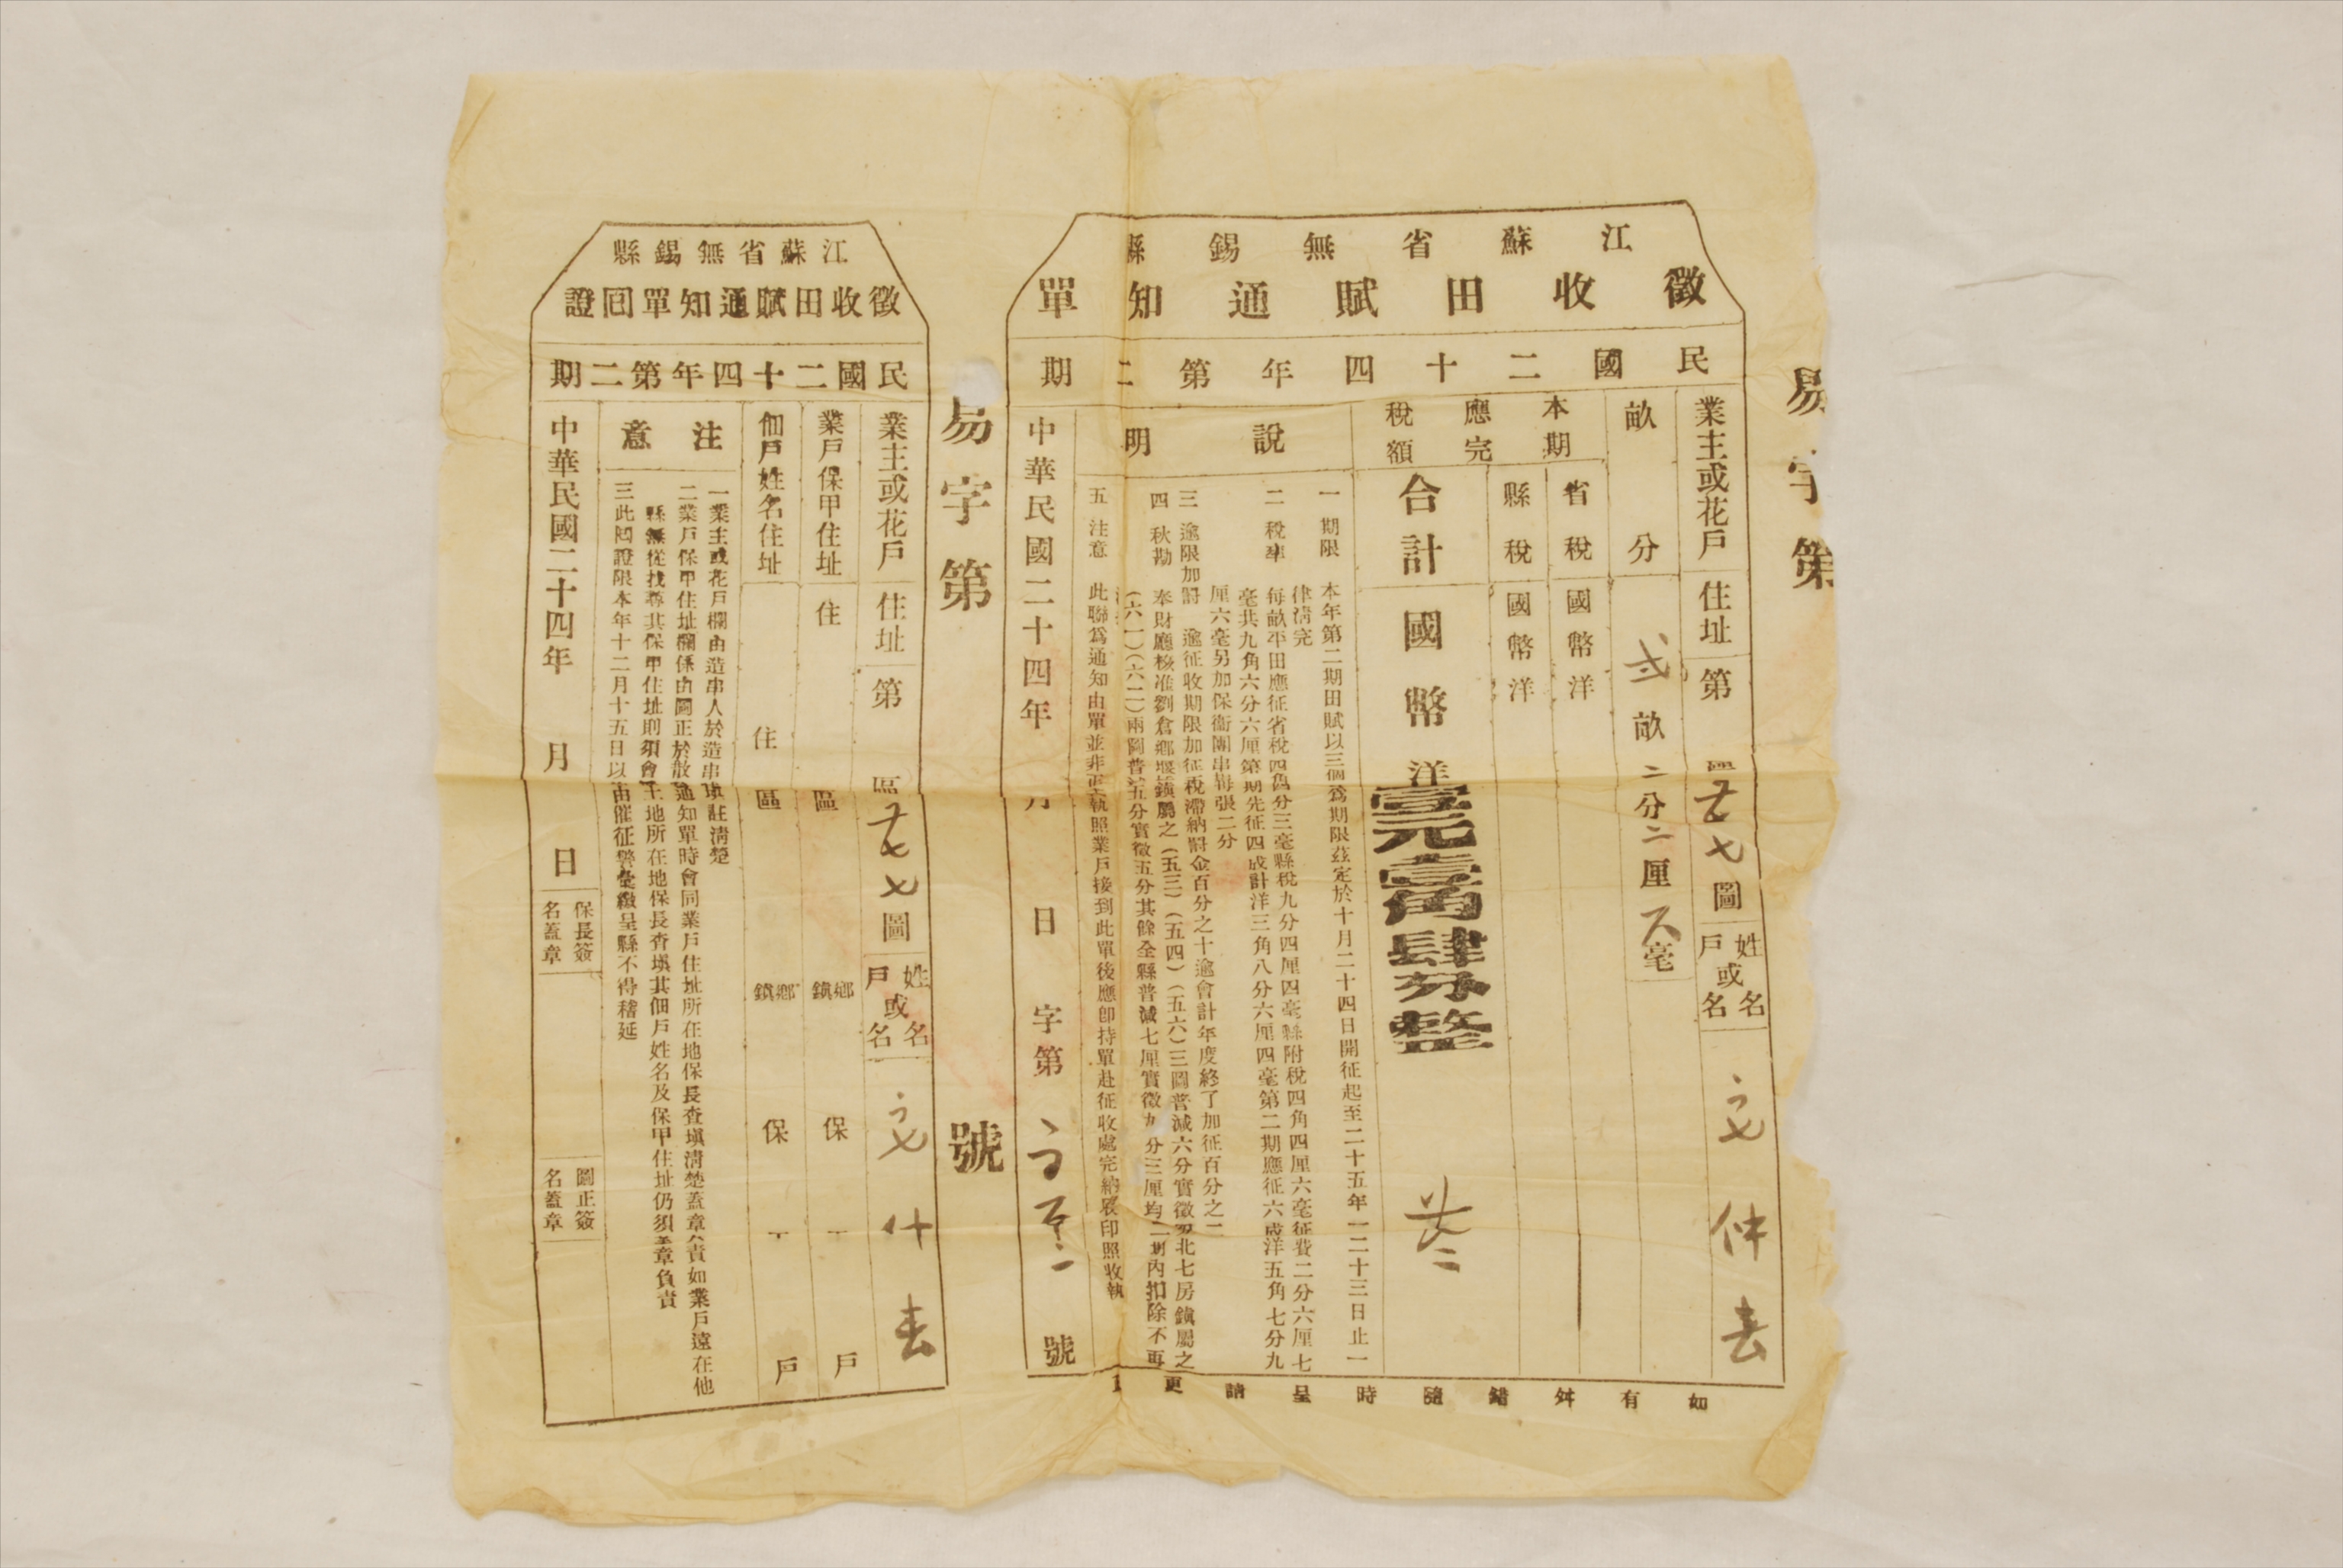 易字第
江蘇省無錫縣
徵收田賦通知單
民國二十四年第二期
業主或花戶
住址
第
圖
姓名或戶名
仲
畝分
畝二分二厘
毫
本期應完稅額
省稅
國幣洋
縣稅
國幣洋
合計
國幣洋壹元壹角肆分整
說明
一 期限 本年第二期田賦以三個爲期限茲定於十月二十四日開征起至二十五年一二十三日止一
律清完
二 稅率 每畝平田應征省稅四舊分三毫縣稅九分四厘四毫縣附稅四角四厘六毫征費二分六厘七
毫共九角六分六厘第期先征四成計洋三角八分六厘四毫第二期應征六成洋五角七分九
厘六毫另加保衞團串每張二分
三 逾限加罸 逾征收期限加征稅滯納罸金百分之十逾會計年度終了加征百分之二
四 秋勘 奉財廳核准劉倉鄉堰鎮屬之(五三)(五四)(五六)三圖普減六分實徵及北七房鎮屬之
(六一)(六二)兩圖普五分實徵五分其餘全縣普減七厘實徵九分三厘均二期內扣除不再
五 注意 此聯爲通知由單並非正執照業戶接到此單後應即持單赴征收處完納裂印照收執
中華民國二十四年
月
日
字第
號
如有舛錯隨時呈請更
易字第
號
江蘇省無錫縣
徵收田賦通知單回證
民國二十四年第二期
業主或花戶
住址
第
區
圖
姓名或戶名
業戶保甲住址
住
區
鄉鎮
保
戶
佃戶姓名住址
住
區
鄉鎮
保
戶
注意
一業主或花戶欄由造串人於造串填註清楚
二業戶保甲住址欄係由圖正於散通知單時會同業戶住址所在地保長查塡清楚蓋章負責如業戶遠在他
縣無從找尋其保甲住址則須會土地所在地保長查塡其佃戶姓名及保甲住址仍須蓋章負責
三此回證限本年十二月十五日以由催征警彙繳呈縣不得稽延
中華民國二十四年
月
日
保長簽名蓋章
圖正簽名蓋章